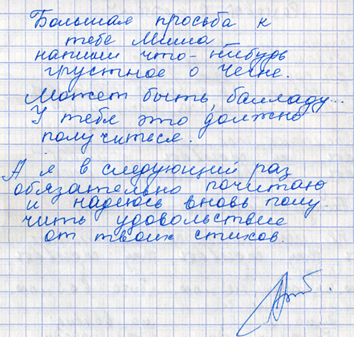 Большая просьба к
тебе Миша
напиши что-нибудь
грустное о Чечне.
Может быть, балладу...
У тебя это должно
получиться.
А я в следующий раз
обязательно почитаю
и надеюсь вновь полу-
чить удовольствие
от твоих стихов.